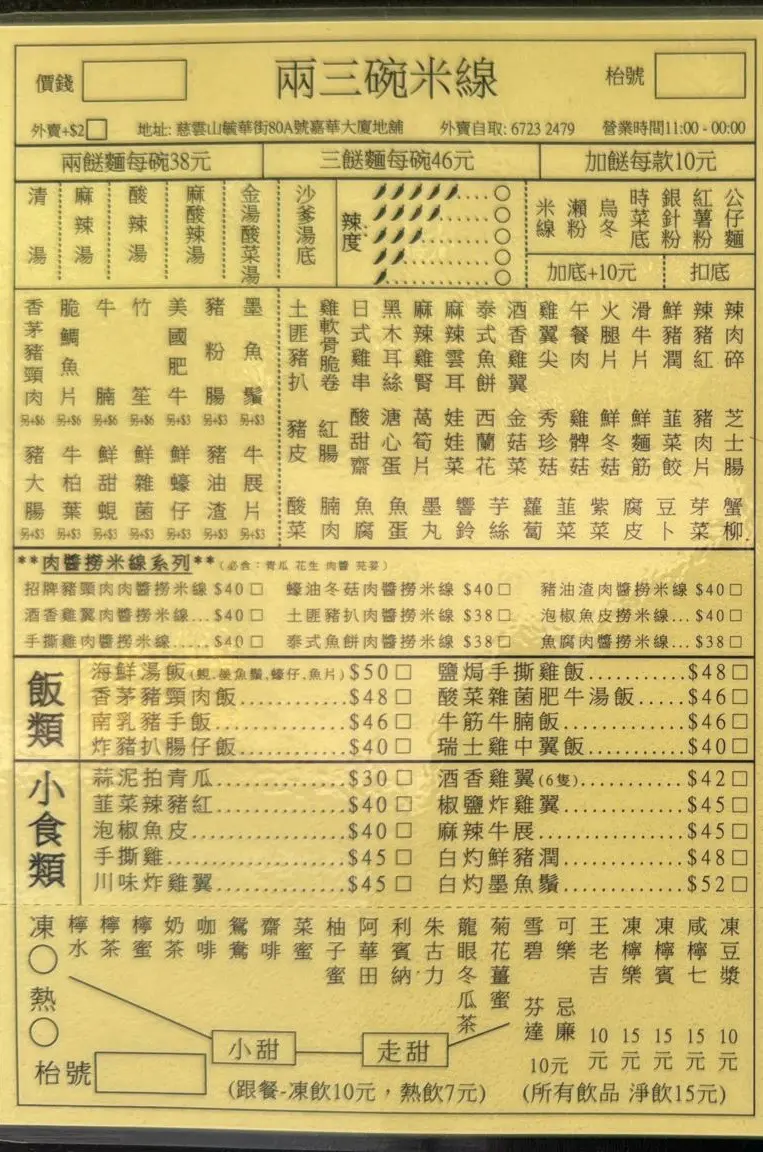 價錢
兩三碗米線
枱號
外賣+$2
地址: 慈雲山毓華街80A號嘉華大廈地舖
外賣自取: 6723 2479
營業時間11:00 - 00:00
兩餸麵每碗38元
三餸麵每碗46元
加餸每款10元
清湯
麻辣湯
酸辣湯
麻酸辣湯
金湯酸菜湯
沙爹湯底
辣度:
米線
瀨粉
烏冬
時菜底
銀針粉
紅薯粉
公仔麵
加底+10元
扣底
香茅豬頸肉 另+$6
脆鯛魚片 另+$6
牛腩 另+$6
竹笙 另+$6
美國肥牛 另+$3
豬粉腸 另+$3
墨魚鬚 另+$3
豬大腸 另+$3
牛柏葉 另+$3
鮮甜蜆 另+$3
鮮雜菌 另+$3
鮮蠔仔 另+$3
豬油渣 另+$3
牛展片 另+$3
土匪豬扒
雞軟骨脆卷
日式雞串
黑木耳絲
麻辣雞腎
麻辣雲耳
泰式魚餅
酒香雞翼
雞翼尖
午餐肉
火腿片
滑牛片
鮮豬潤
辣豬紅
辣肉碎
豬皮
紅腸
酸甜齋
溏心蛋
萵筍片
娃娃菜
西蘭花
金菇菜
秀珍菇
雞髀菇
鮮冬菇
鮮麵筋
韮菜餃
豬肉片
芝士腸
酸菜
腩肉
魚腐
魚蛋
墨丸
響鈴
芋絲
蘿蔔
韮菜
紫菜
腐皮
豆卜
芽菜
蟹柳
**肉醬撈米線系列**(必含：青瓜 花生 肉醬 芫荽)
招牌豬頸肉肉醬撈米線 $40
蠔油冬菇肉醬撈米線 $40
豬油渣肉醬撈米線 $40
酒香雞翼肉醬撈米線...$40
土匪豬扒肉醬撈米線 $38
泡椒魚皮撈米線...$40
手撕雞肉醬撈米線.....$40
泰式魚餅肉醬撈米線 $38
魚腐肉醬撈米線...$38
飯類
海鮮湯飯(蜆,墨魚鬚,蠔仔,魚片)$50
鹽焗手撕雞飯...........$48
香茅豬頸肉飯...........$48
酸菜雜菌肥牛湯飯.....$46
南乳豬手飯.............$46
牛筋牛腩飯.............$46
炸豬扒腸仔飯...........$40
瑞士雞中翼飯...........$40
小食類
蒜泥拍青瓜.............$30
酒香雞翼(6隻)...........$42
韮菜辣豬紅.............$40
椒鹽炸雞翼.............$45
泡椒魚皮...............$40
麻辣牛展...............$45
手撕雞.................$45
白灼鮮豬潤.............$48
川味炸雞翼.............$45
白灼墨魚鬚.............$52
凍
熱
檸水
檸茶
檸蜜
奶茶
咖啡
鴛鴦
齋啡
菜蜜
柚子蜜
阿華田
利賓納
朱古力
龍眼冬瓜茶
菊花薑蜜
雪碧
可樂
芬達
忌廉
10元
王老吉 10元
凍檸樂 15元
凍檸賓 15元
咸檸七 15元
凍豆漿 10元
小甜
走甜
枱號
(跟餐-凍飲10元，熱飲7元)
(所有飲品 淨飲15元)